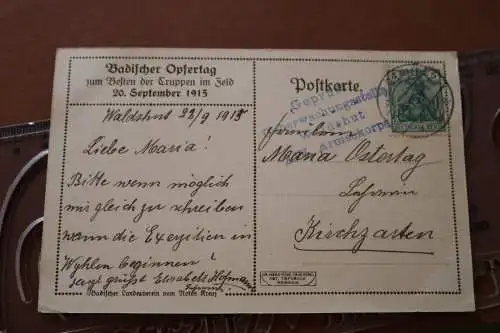 Badischer Opfertag
zum Besten der Truppen im Feld
20. September 1915
Waldshut 22/9 1915
Liebe Maria!
Bitte wenn möglich
mir gleich zu schreiben
wann die Exerzitien in
Wyhlen beginnen!
grüßt Elisabeth Hofmann
Badischer Landesverein vom Roten Kreuz
Postkarte.
Geprüft
Überwachungsstelle
Waldshut
Armeekorps
Fräulein
Maria Ostertag
Lehrerin
Kirchzarten